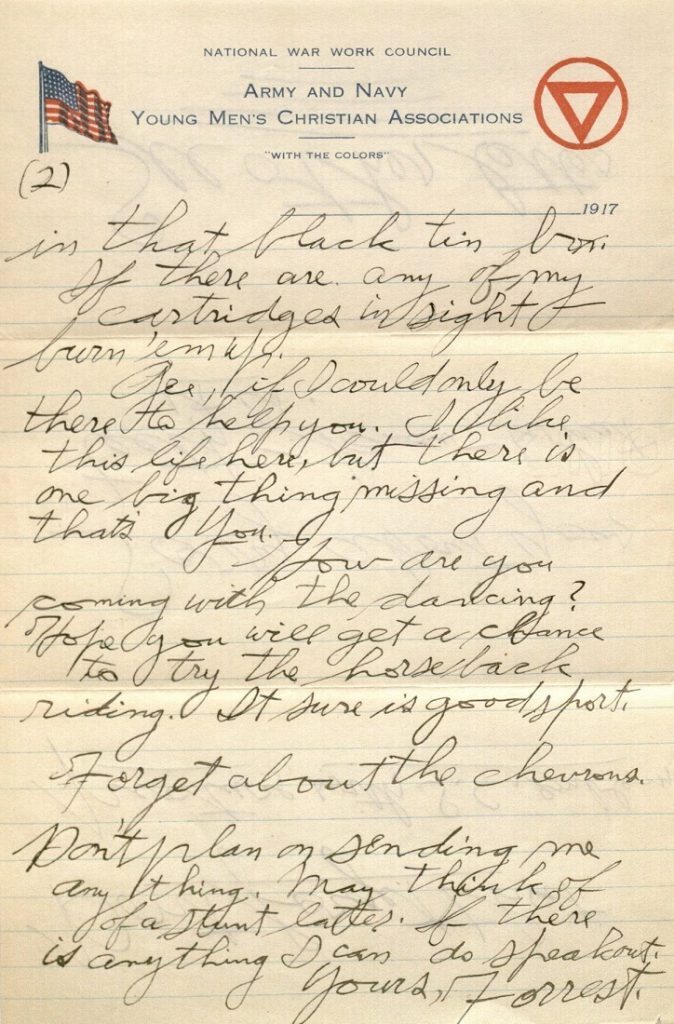 NATIONAL WAR WORK COUNCIL
ARMY AND NAVY
YOUNG MEN'S CHRISTIAN ASSOCIATIONS
"WITH THE COLORS"
(2)
1917
in that black tin box.
If there are any of my
cartridges in sight
burn 'em up.
Gee, if I could only be
there to help you. I like
this life here, but there is
one big thing missing and
that's You.
How are you
coming with the dancing?
Hope you will get a chance
to try the horseback
riding. It sure is good sport.
Forget about the chevrons.
Don't plan on sending me
any thing. May think of
of a stunt later. If there
is anything I can do speak out.
Yours, Forrest.